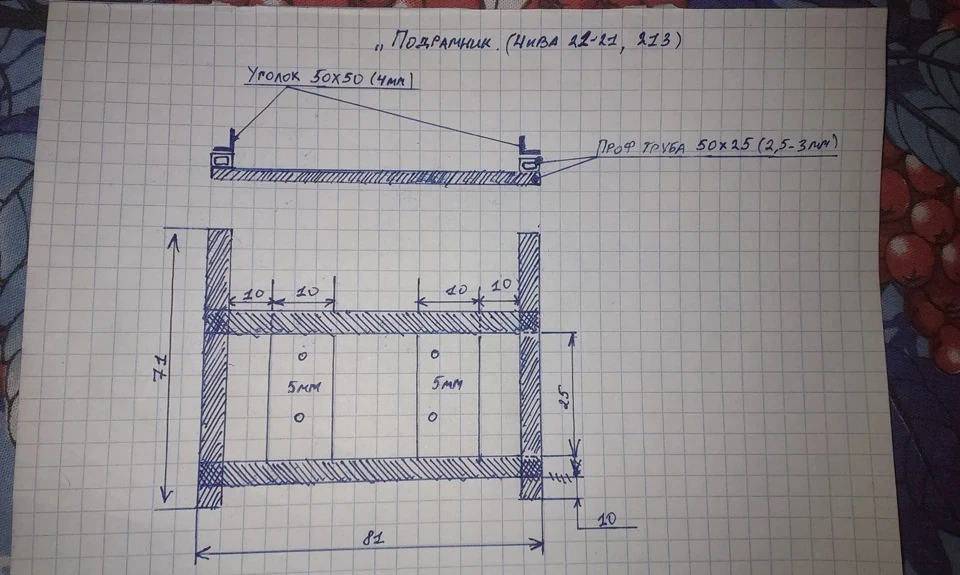 „ Подрамник. (Нива 21-21, 213)
Уголок 50х50 (4мм)
Проф труба 50х25 (2,5-3мм)
10 10 10 10
71
5мм 5мм
25
10
81